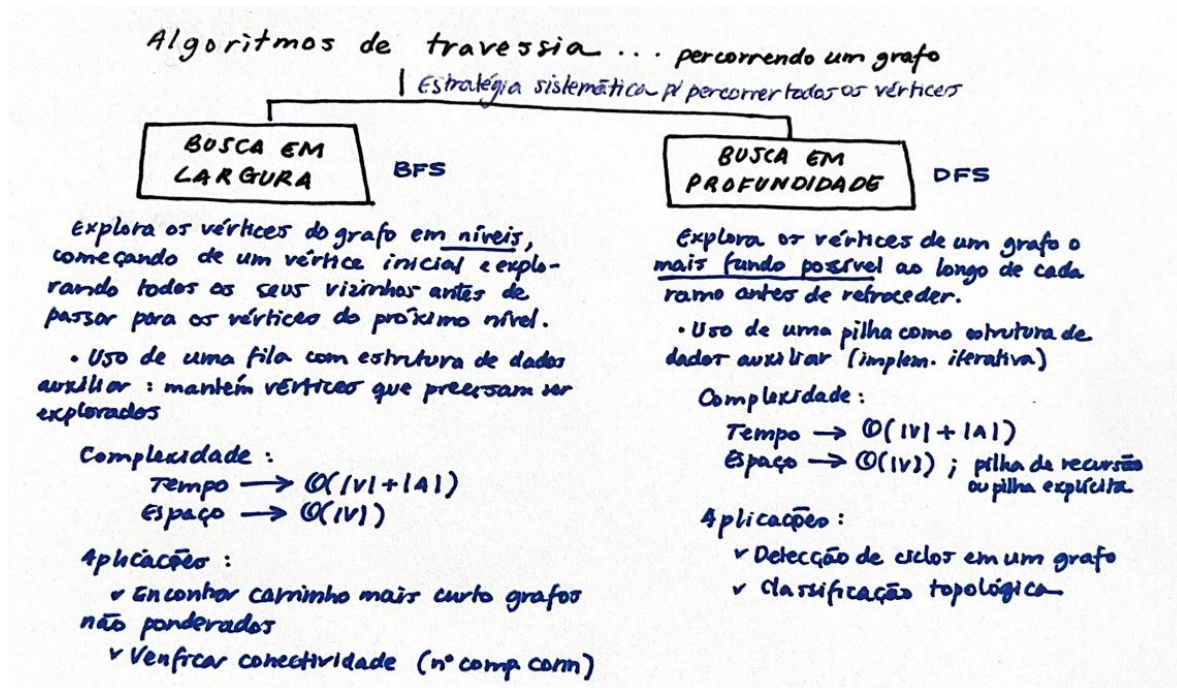 Algoritmos de travessia .... percorrendo um grafo
Estratégia sistemática p/ percorrer todos os vértices
BUSCA EM
LARGURA
BFS
Explora os vértices do grafo em níveis,
começando de um vértice inicial e explo-
rando todos os seus vizinhos antes de
passar para os vértices do próximo nível.
• Uso de uma fila com estrutura de dados
auxiliar : mantém vértices que precisam ser
explorados
Complexidade :
Tempo → O(|V| + |A|)
Espaço → O(|V|)
Aplicações :
✓ Encontrar caminho mais curto grafos
não ponderados
✓ Verificar conectividade (nº comp conn)
BUSCA EM
PROFUNDIDADE
DFS
Explora os vértices de um grafo o
mais fundo possível ao longo de cada
ramo antes de retroceder.
• Uso de uma pilha como estrutura de
dados auxiliar (implem. iterativa)
Complexidade :
Tempo → O(|V| + |A|)
Espaço → O(|V|) ; pilha de recursão
ou pilha explícita
Aplicações :
✓ Detecção de ciclos em um grafo
✓ Classificação topológica